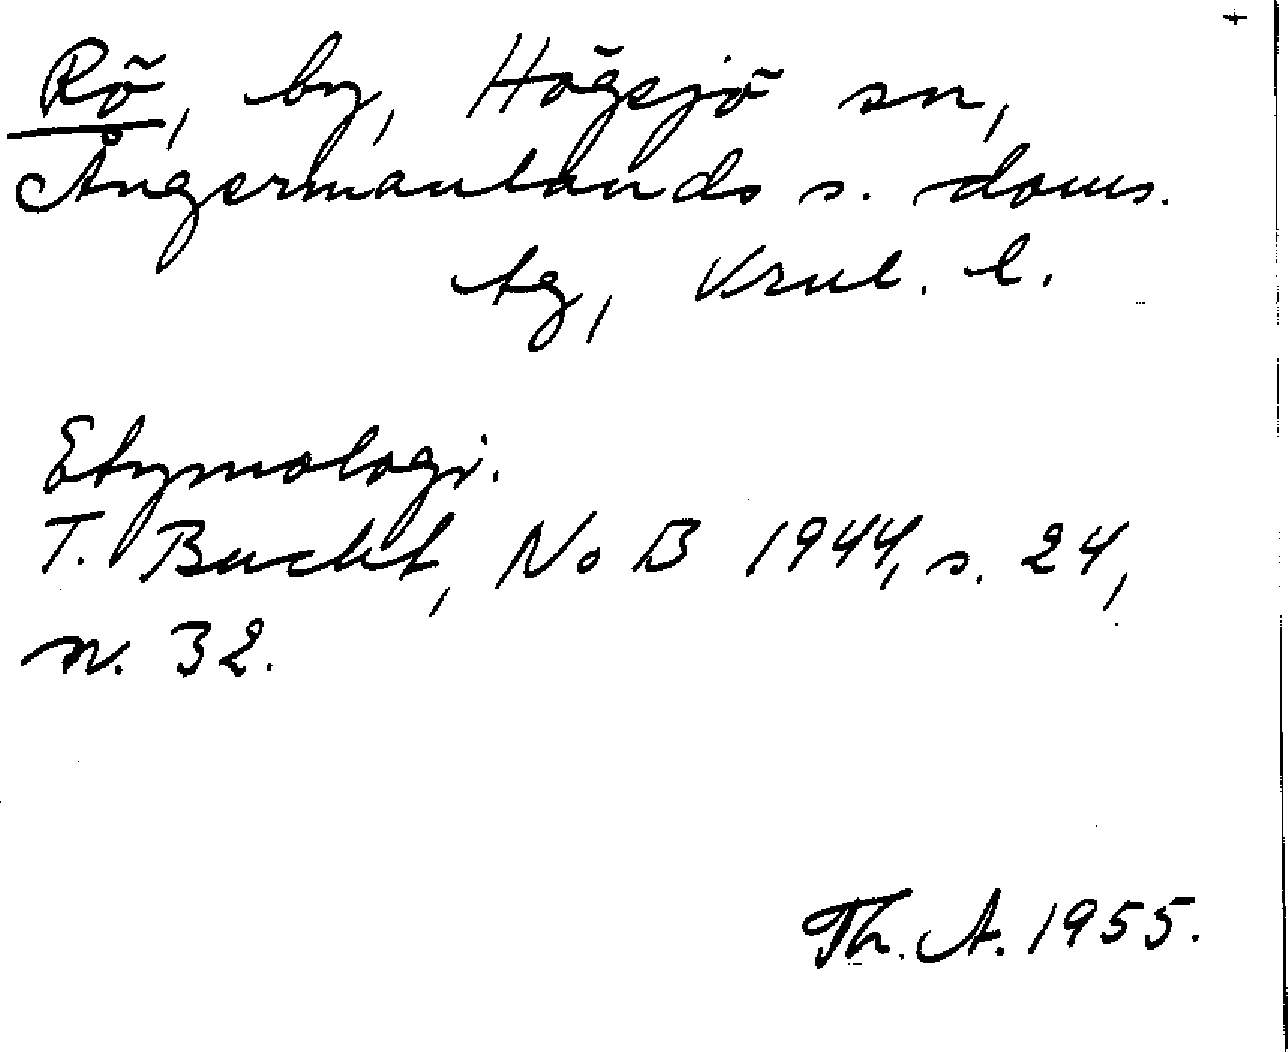 +
Rö, by, Högsjö sn,
Ångermanlands s. doms.
tg, Vrnl. l.
Etymologi.
T. Bucht, NoB 1944, s. 24,
n. 32.
Th. A. 1955.